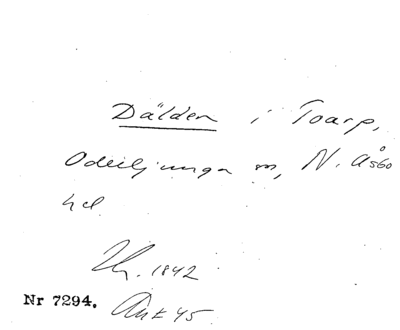 Dälden i Toarp,
Oderljunga sn, N. Åsbo
hd.
Th. 1842
Nr 7294. Ank 45